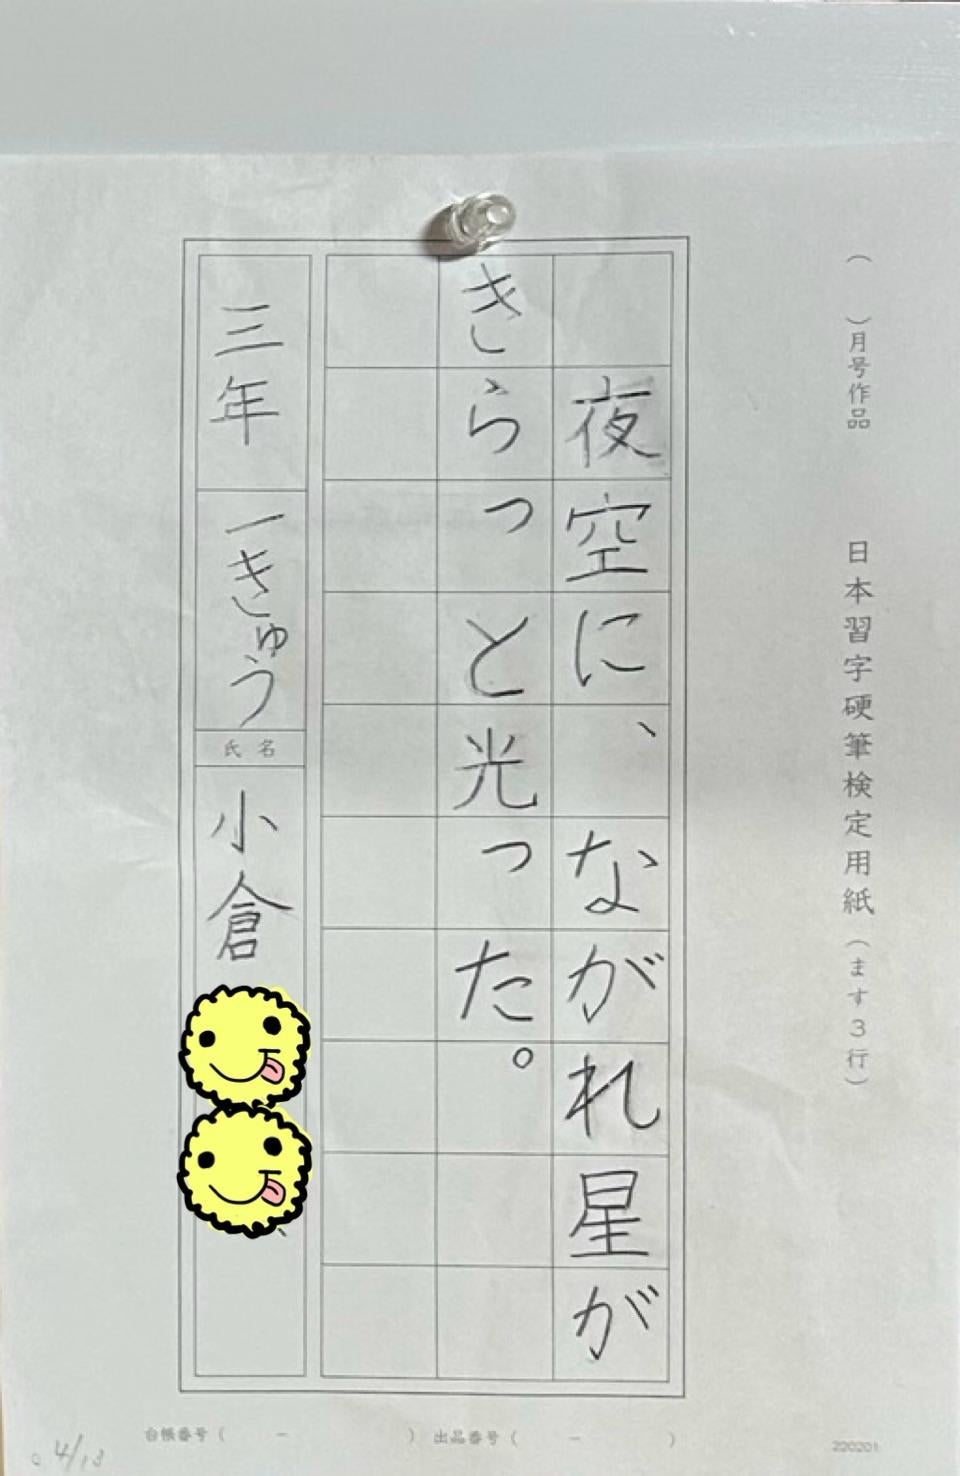 （　　）月号作品　　日本習字硬筆検定用紙（ます３行）
夜空に、ながれ星が
きらっと光った。
三年　一きゅう　氏名　小倉
台帳番号（　　－　　）　出品番号（　　－　　）
220201
4/18